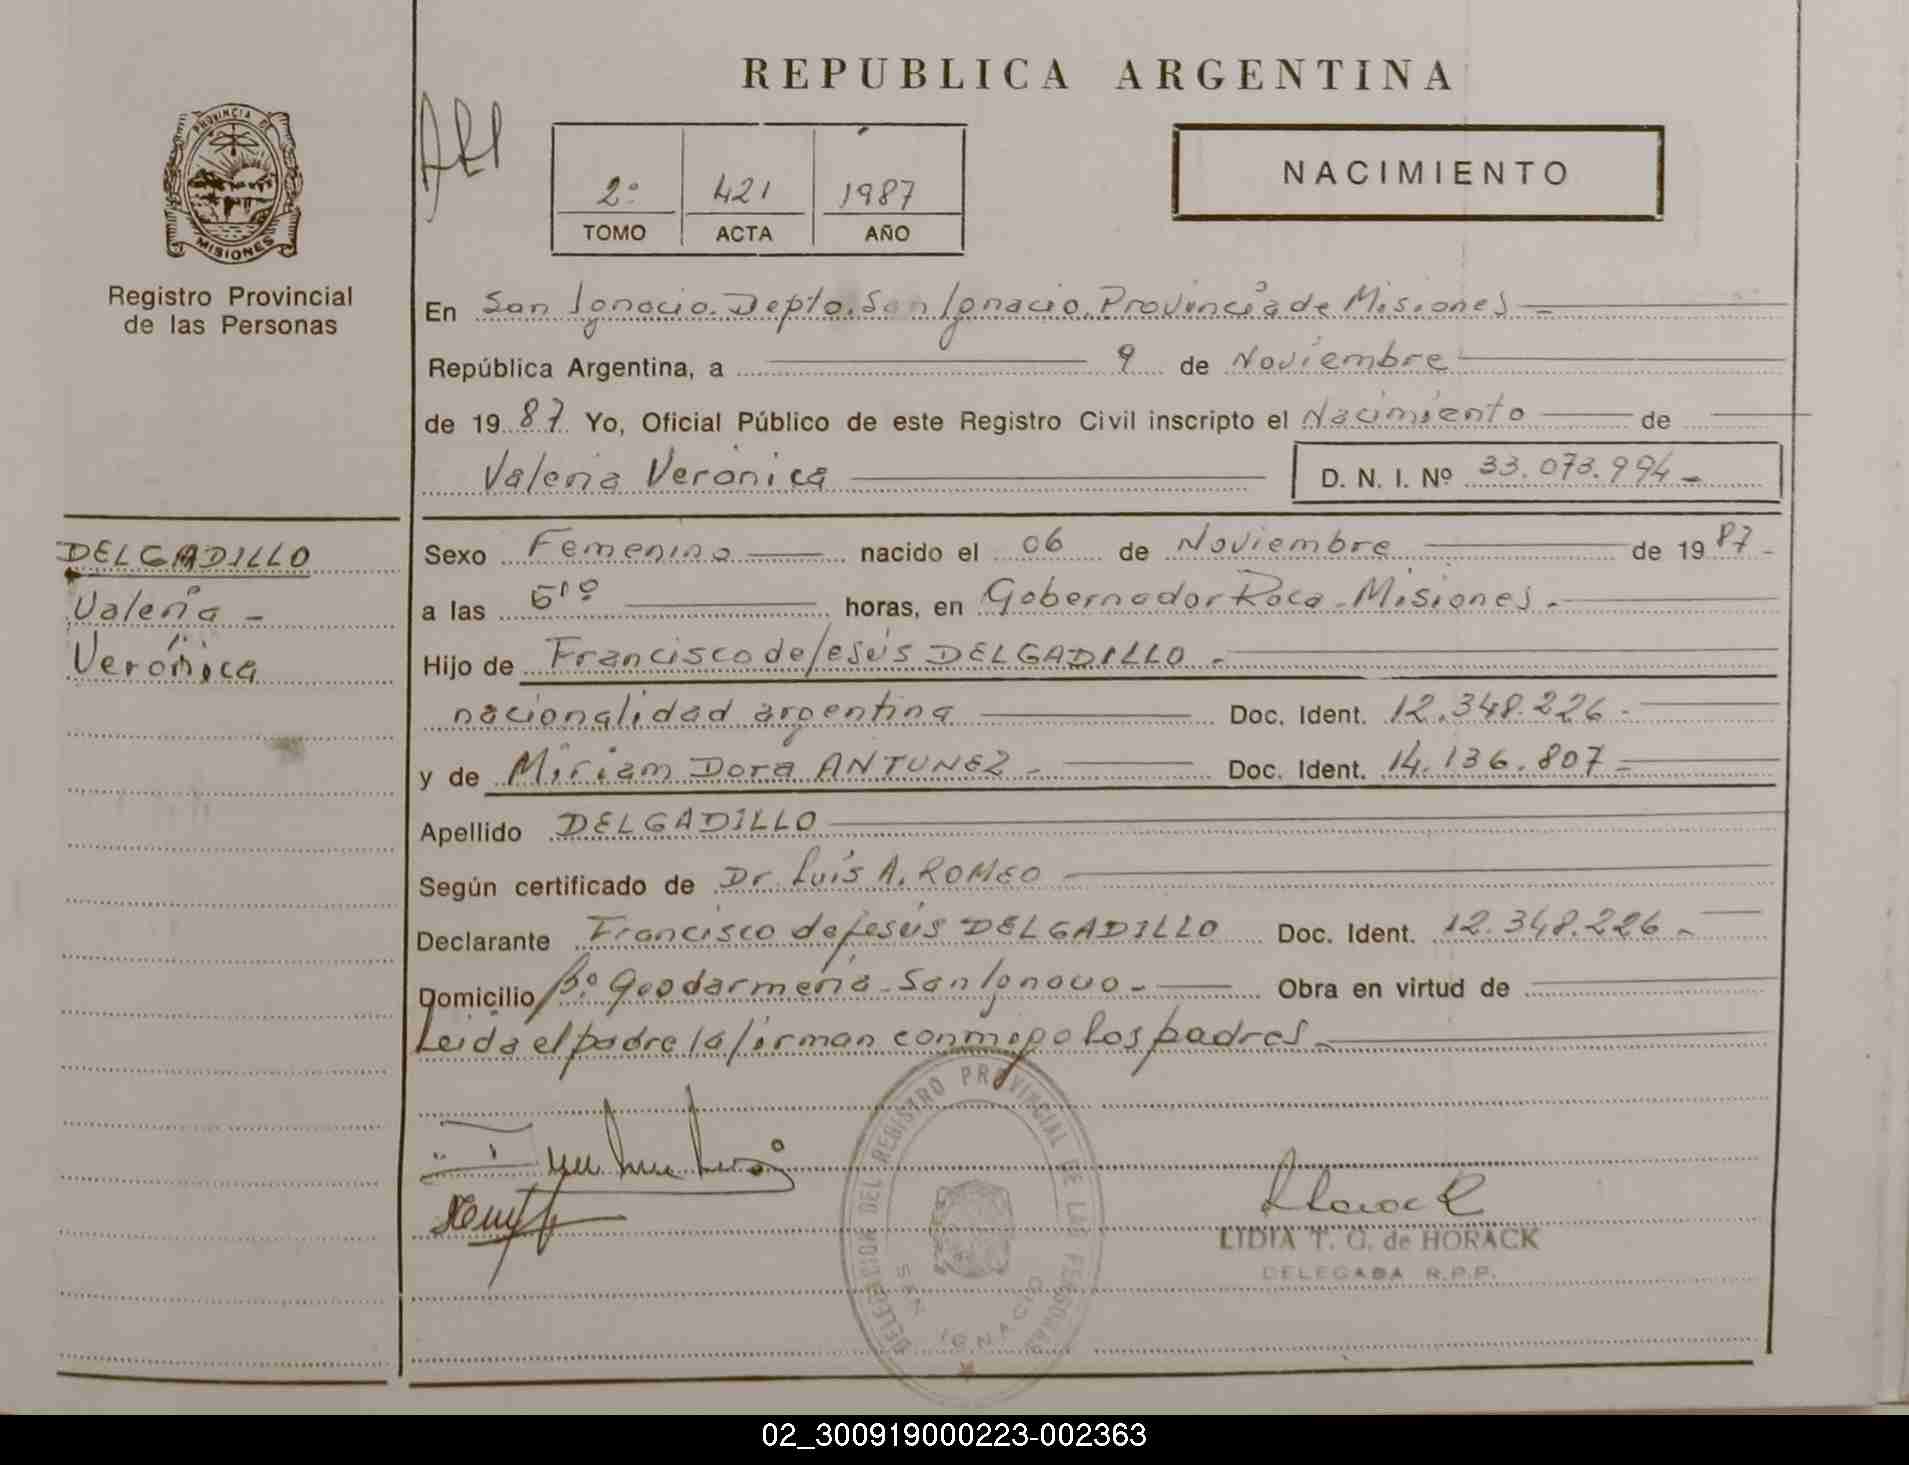 REPUBLICA ARGENTINA
PROVINCIA DE
MISIONES
Registro Provincial
de las Personas
2º 421 1987
TOMO ACTA AÑO
NACIMIENTO
En San Ignacio. Depto. San Ignacio. Provincia de Misiones
República Argentina, a 9 de Noviembre
de 1987 Yo, Oficial Público de este Registro Civil inscripto el Nacimiento de
Valeria Verónica D. N. I. Nº 33.073.994
DELGADILLO
Valeria
Verónica
Sexo Femenino nacido el 06 de Noviembre de 1987
a las horas, en Gobernador Roca - Misiones.
Hijo de Francisco de Jesús DELGADILLO
nacionalidad argentina Doc. Ident. 12.348.226
y de Miriam Dora ANTUNEZ Doc. Ident. 14.136.807
Apellido DELGADILLO
Según certificado de Dr. Luis A. ROMEO
Declarante Francisco de Jesús DELGADILLO Doc. Ident. 12.348.226
Domicilio Bº Gendarmeria - San Ignacio - Obra en virtud de
Leida el padre la firman conmigo los padres
DELEGACION DEL REGISTRO PROVINCIAL DE LAS PERSONAS
SAN IGNACIO
LIDIA T. G. de HORACK
DELEGADA R.P.P.
02_300919000223-002363